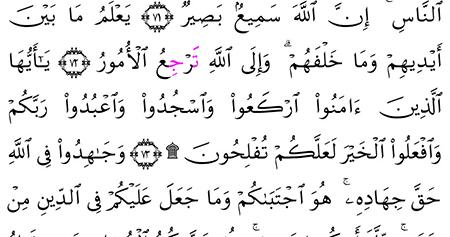 ٱلنَّاسِ ۚ إِنَّ ٱللَّهَ سَمِيعٌۢ بَصِيرٌ ٧١ يَعْلَمُ مَا بَيْنَ
أَيْدِيهِمْ وَمَا خَلْفَهُمْ ۗ وَإِلَى ٱللَّهِ تَرْجِعُ ٱلْأُمُورُ ٧٢ يَٰٓأَيُّهَا
ٱلَّذِينَ ءَامَنُوا۟ ٱرْكَعُوا۟ وَٱسْجُدُوا۟ وَٱعْبُدُوا۟ رَبَّكُمْ
وَٱفْعَلُوا۟ ٱلْخَيْرَ لَعَلَّكُمْ تُفْلِحُونَ ۩ ٧٣ وَجَٰهِدُوا۟ فِى ٱللَّهِ
حَقَّ جِهَادِهِۦ ۚ هُوَ ٱجْتَبَىٰكُمْ وَمَا جَعَلَ عَلَيْكُمْ فِى ٱلدِّينِ مِنْ